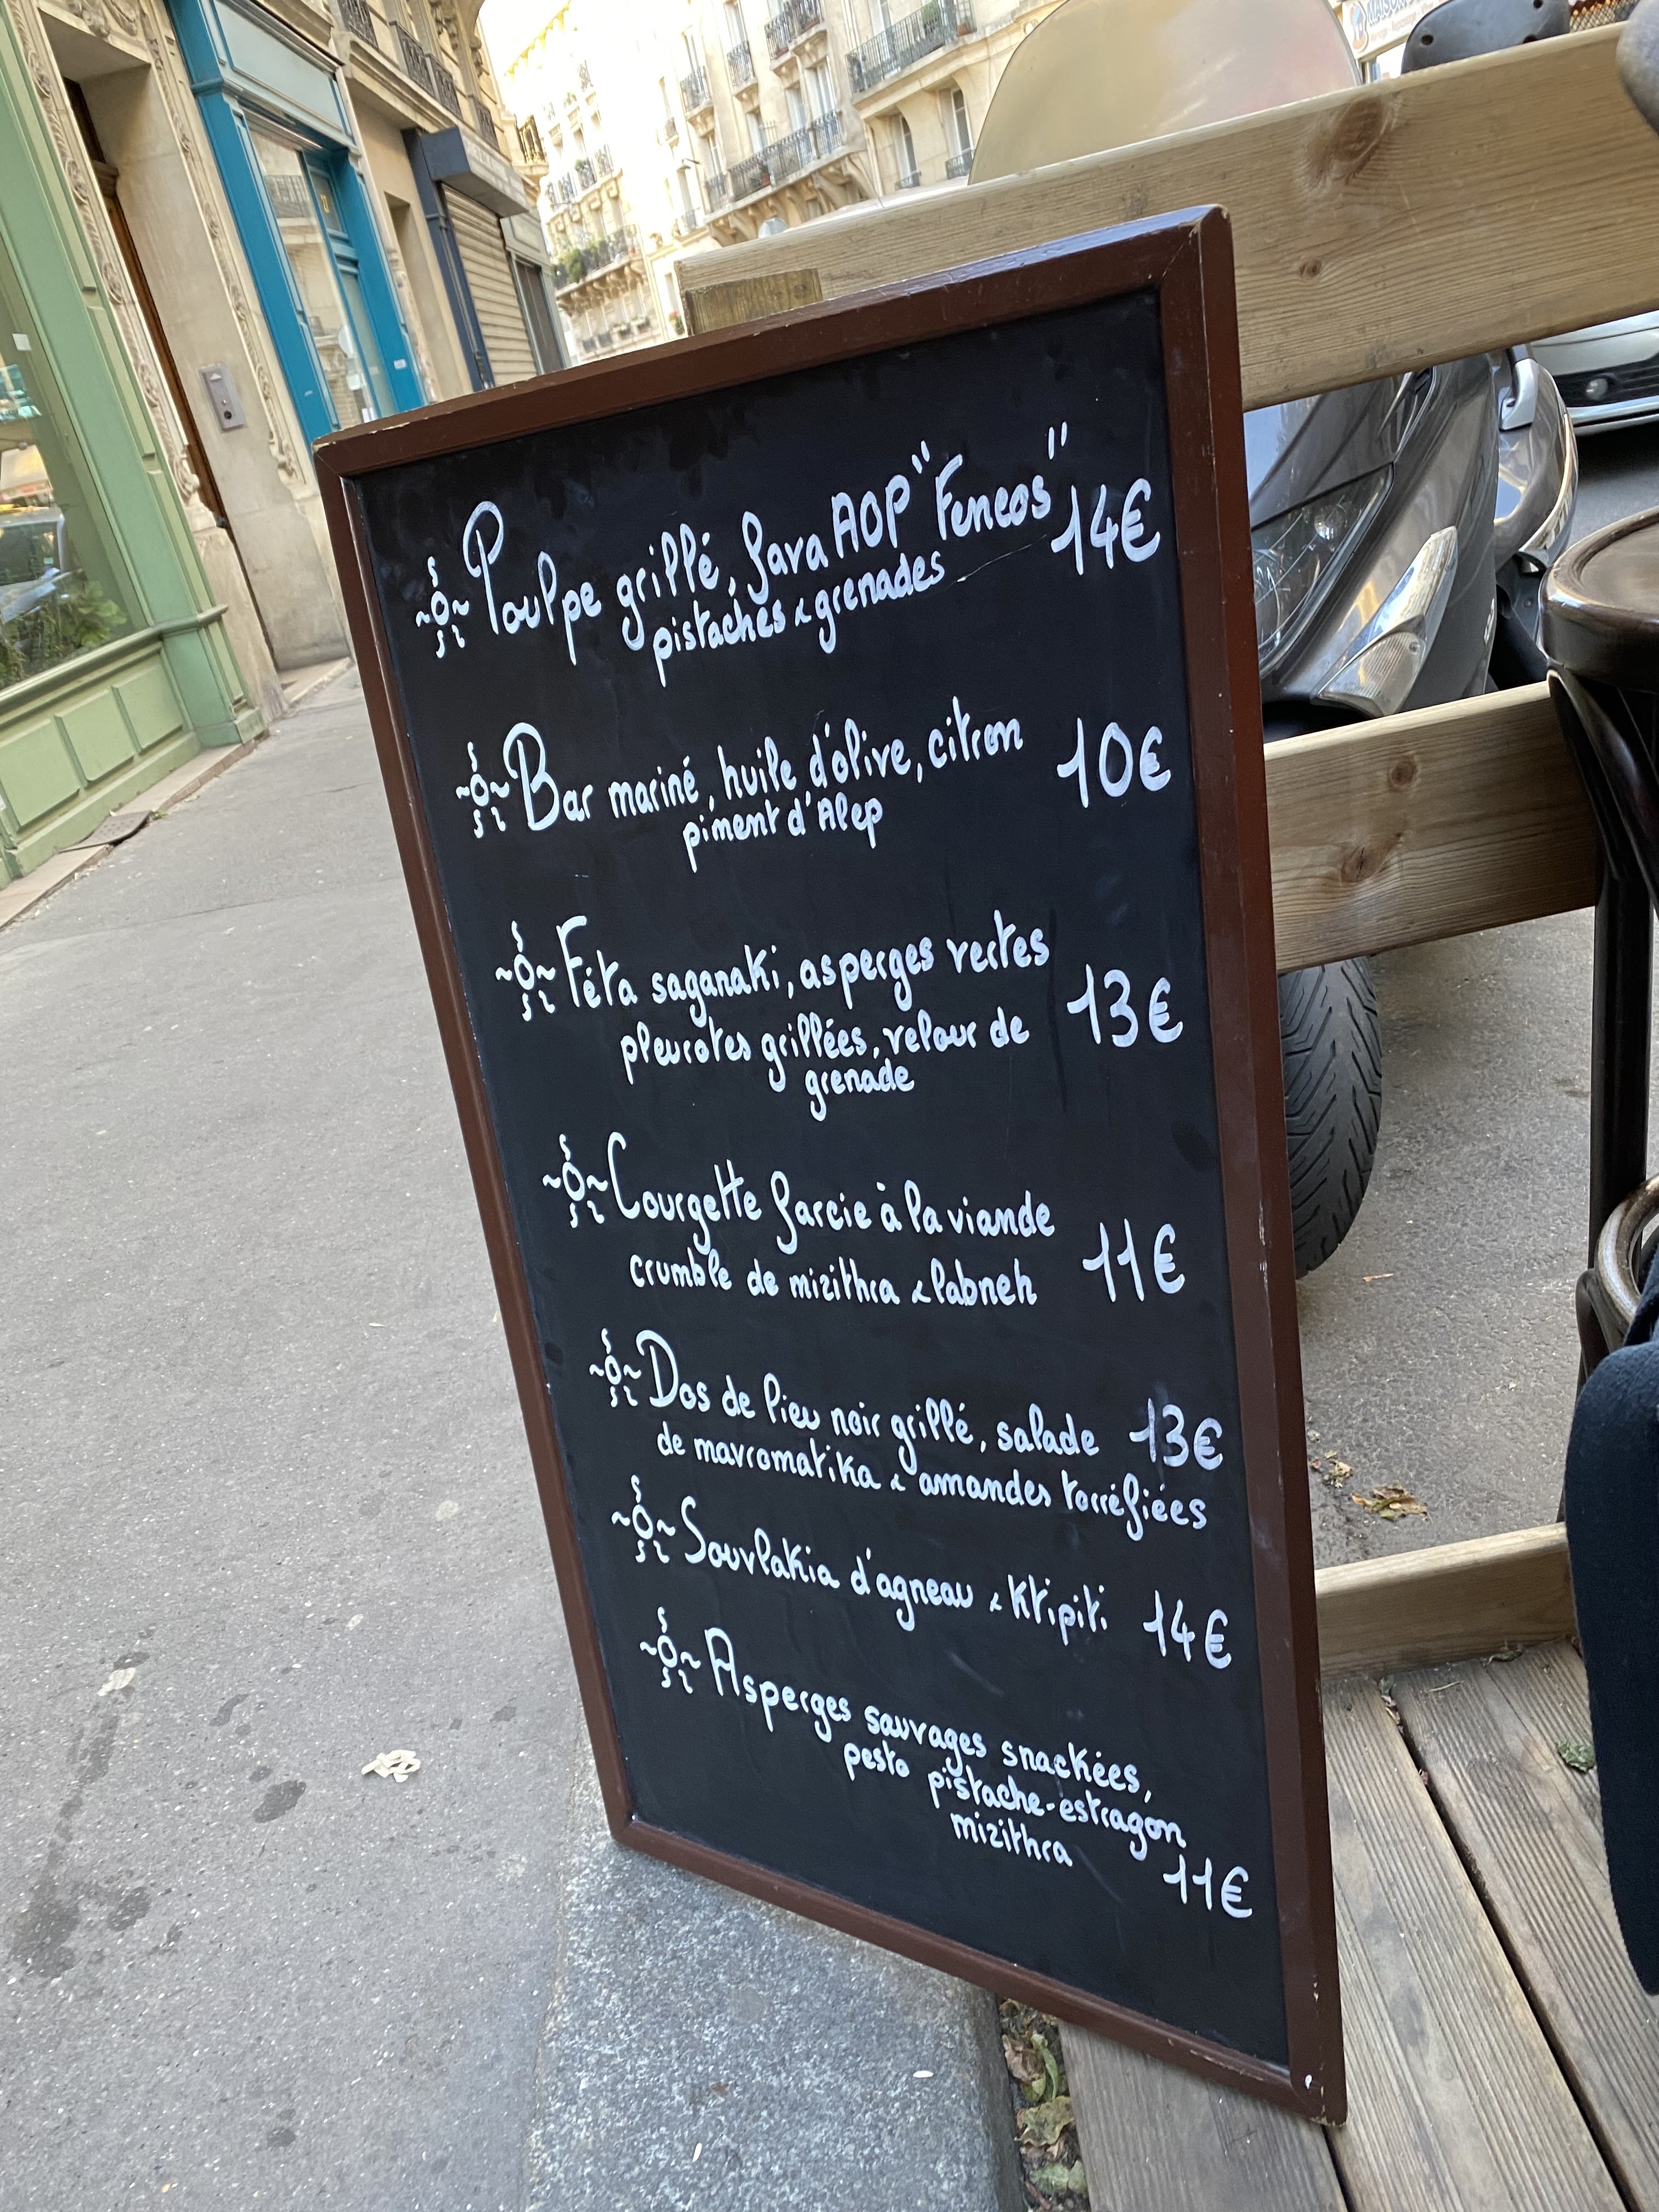 Poulpe grillé, fava AOP "Feneos" 14€
pistaches & grenades
Bar mariné, huile d'olive, citron 10€
piment d'Alep
Féta saganaki, asperges vertes
pleurotes grillées, velour de 13€
grenade
Courgette farcie à la viande
crumble de mizithra & labneh 11€
Dos de lieu noir grillé, salade 13€
de mavromatika & amandes torréfiées
Souvlakia d'agneau & Ktipiti 14€
Asperges sauvages snackées,
pesto pistache-estragon
mizithra
11€